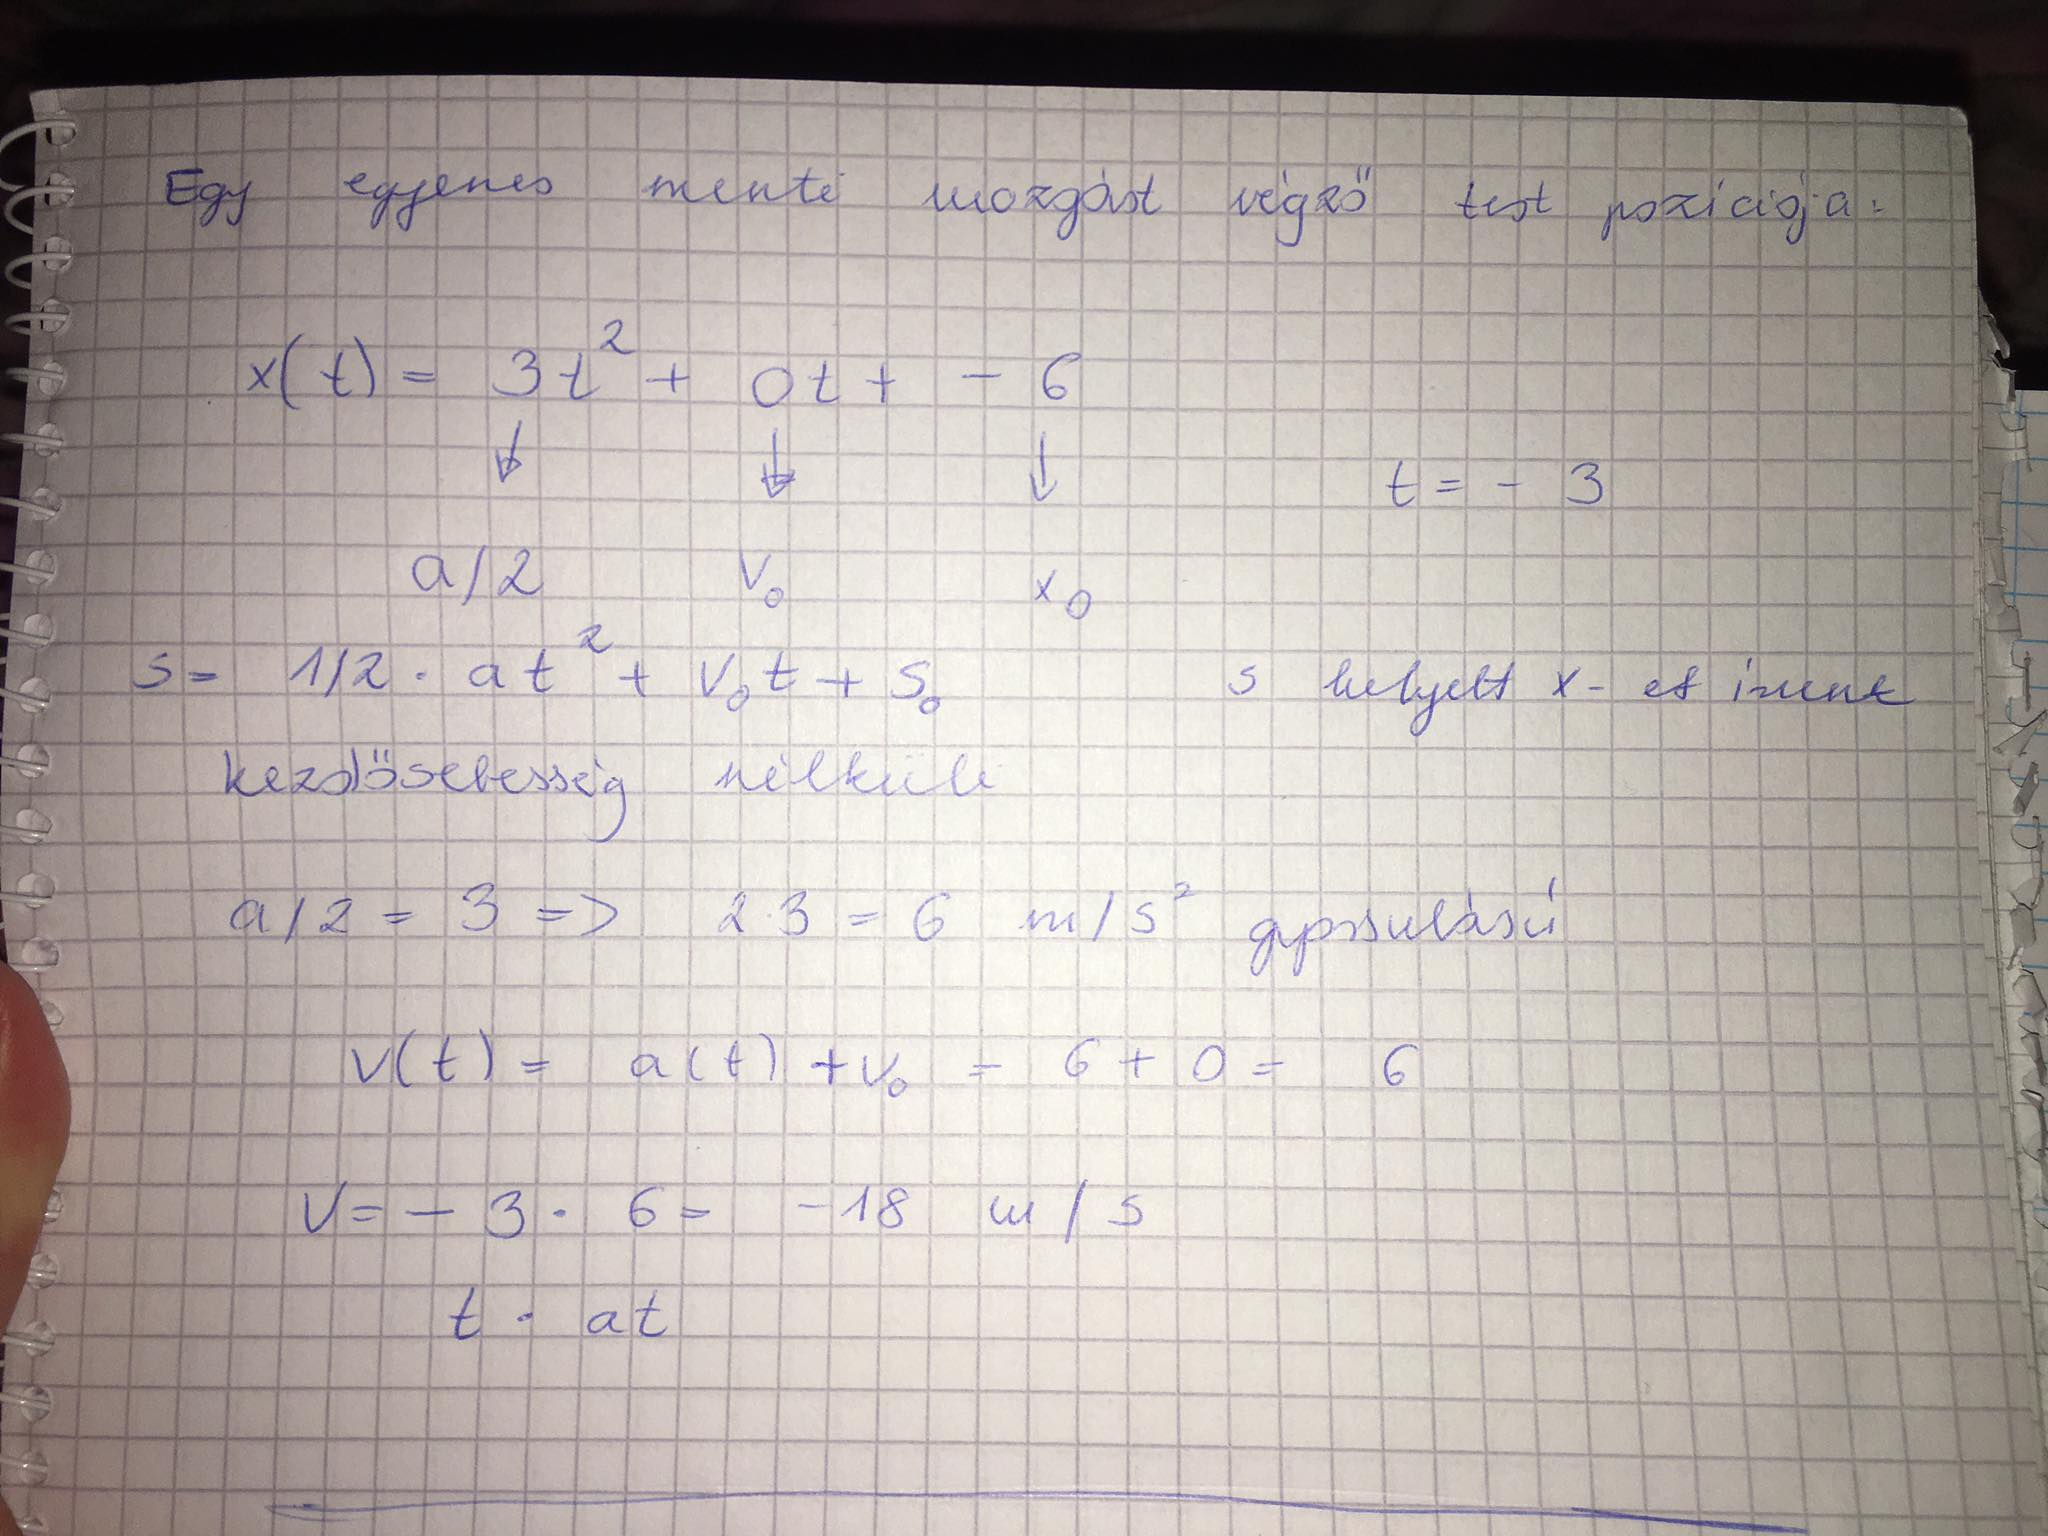 Egy egyenes menti mozgást végző test pozíciója:
x(t) = 3t² + 0t + - 6
t = - 3
a/2 v₀ x₀
s = 1/2 · at² + v₀t + s₀ s helyett x-et írunk
kezdősebesség nélküli
a/2 = 3 => 2·3 = 6 m/s² gyorsulású
v(t) = a(t) + v₀ = 6 + 0 = 6
V = - 3 · 6 = -18 m/s
t · at